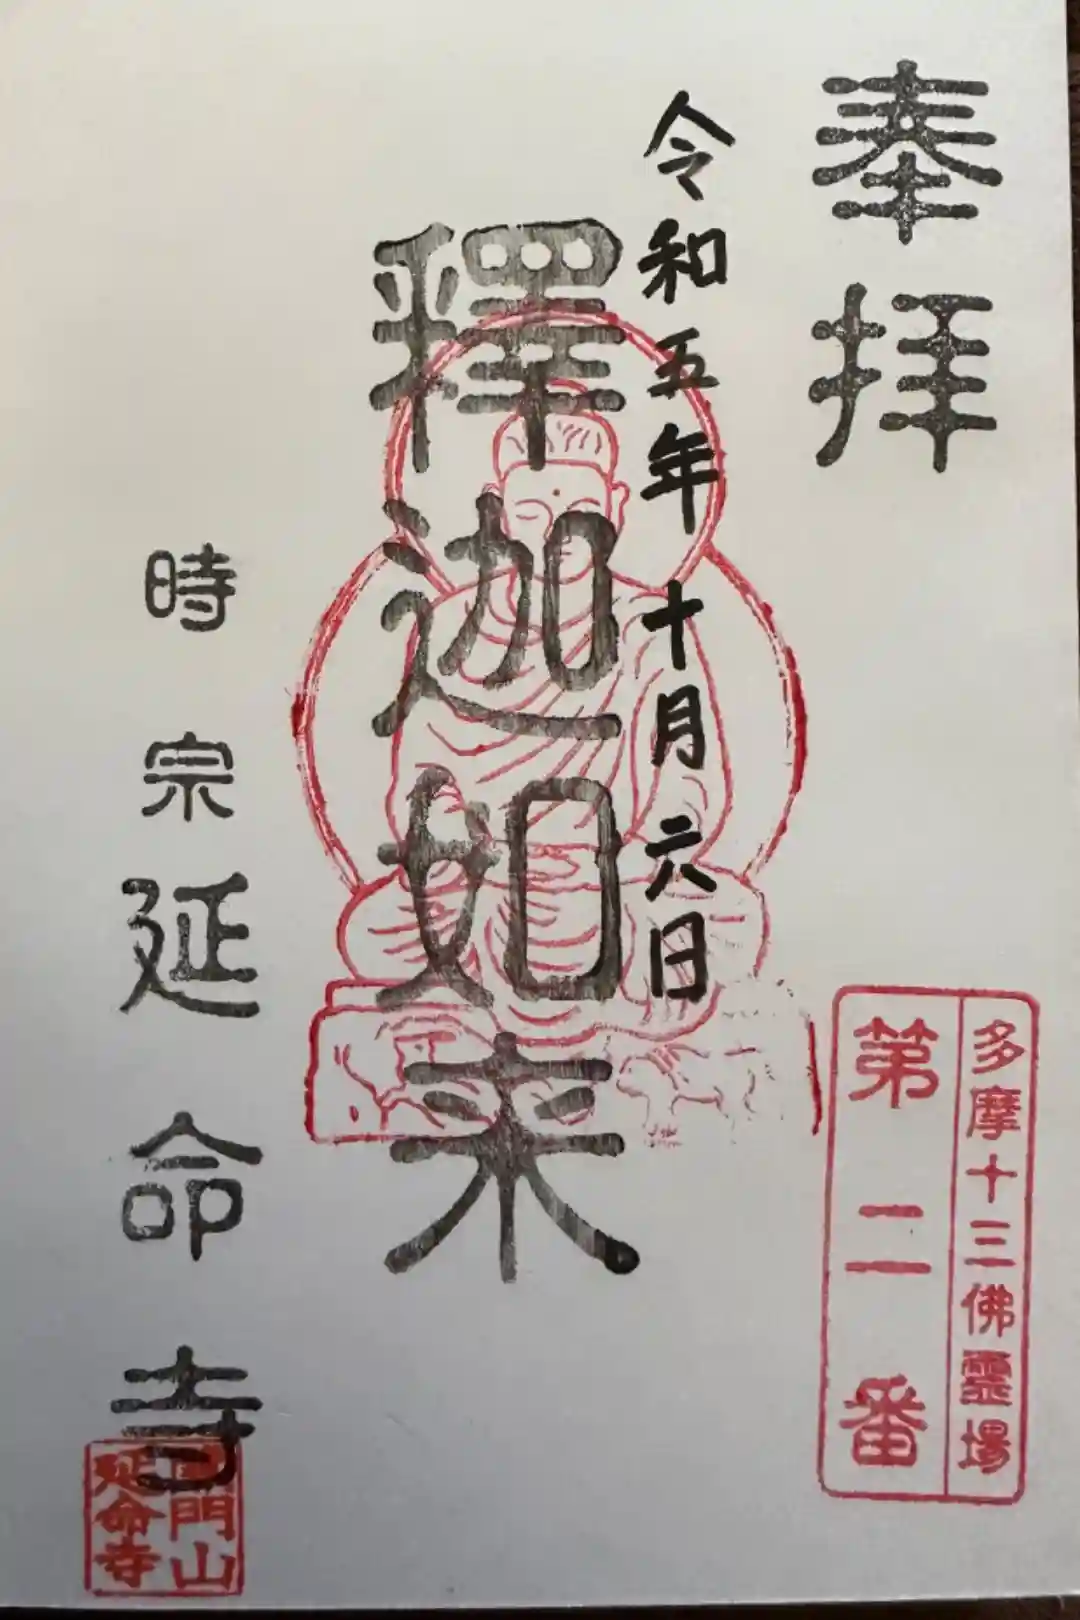 奉拝
多摩十三佛霊場
第二番
令和五年十月六日
釋迦如来
時宗延命寺
門山
延命寺